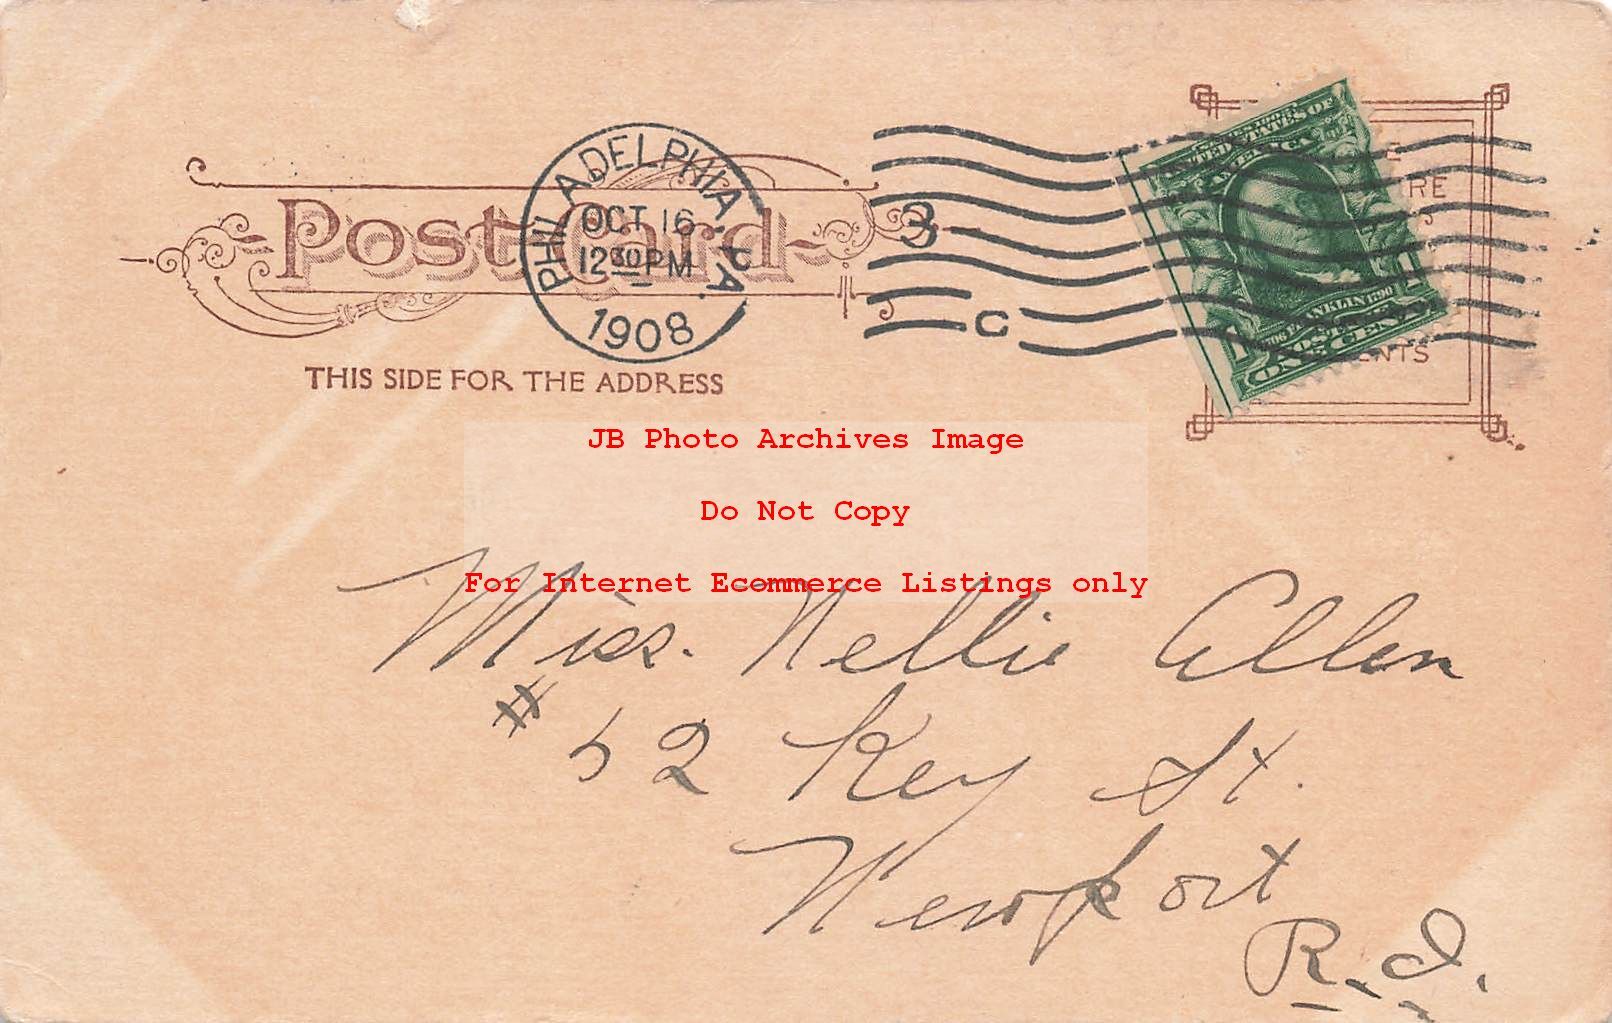 Post Card
PHILADELPHIA, PA.
OCT 16
12 30 PM
1908
3
C
THIS SIDE FOR THE ADDRESS
UNITED STATES OF
AMERICA
1706 FRANKLIN 1790
POSTAGE
1 ONE CENT 1
JB Photo Archives Image
Do Not Copy
For Internet Ecommerce Listings only
Miss. Nellie Allen
# 52 Key St.
Newport
R.I.